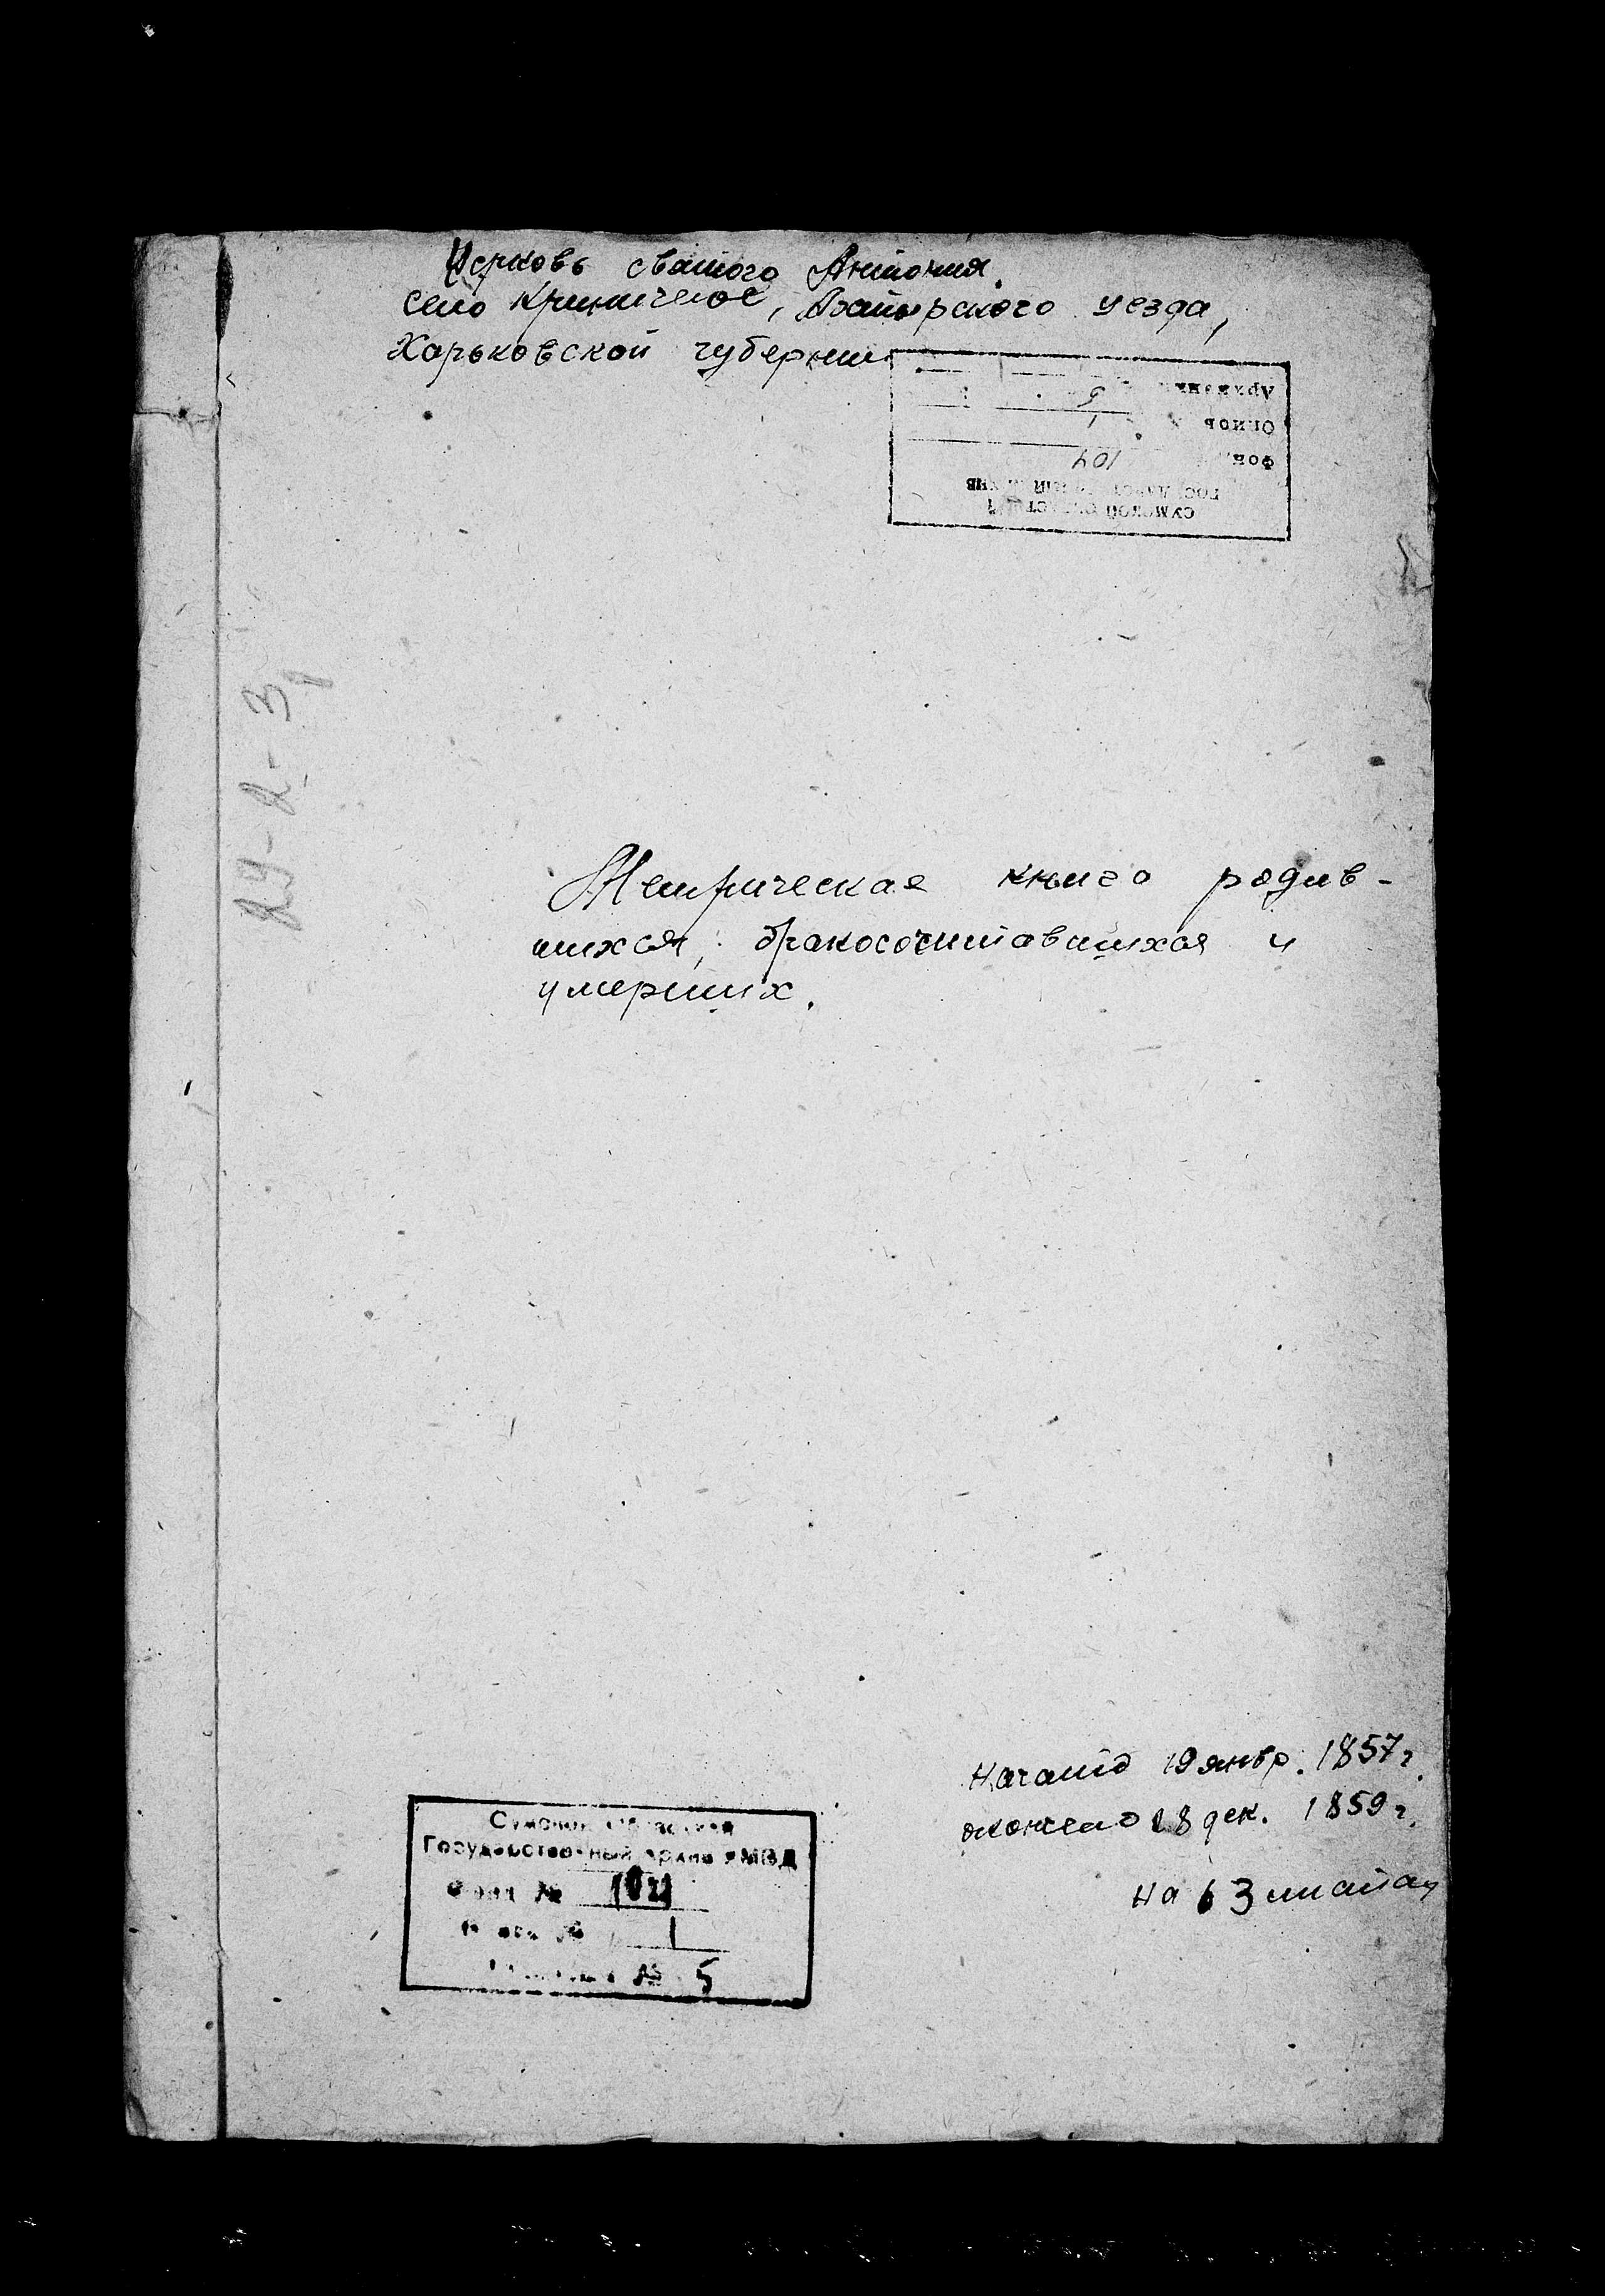 Церковь святого Антония.
село Криничное, Ахтырского уезда,
Харьковской губернии
Архивный 5
Опись 1
Фонд 104
ГОСУДАРСТВЕННЫЙ АРХИВ
СУМСКОЙ ОБЛАСТИ
29-2-3
Метрическая книга родив-
шихся, бракосочитавшихся и
умерших.
Начато 19 янвр. 1857 г.
окончено 28 дек. 1859 г.
на 63 листах
Сумской Областной
Государственный архив УМВД
Фонд № 104
Опись № 1
№ 5